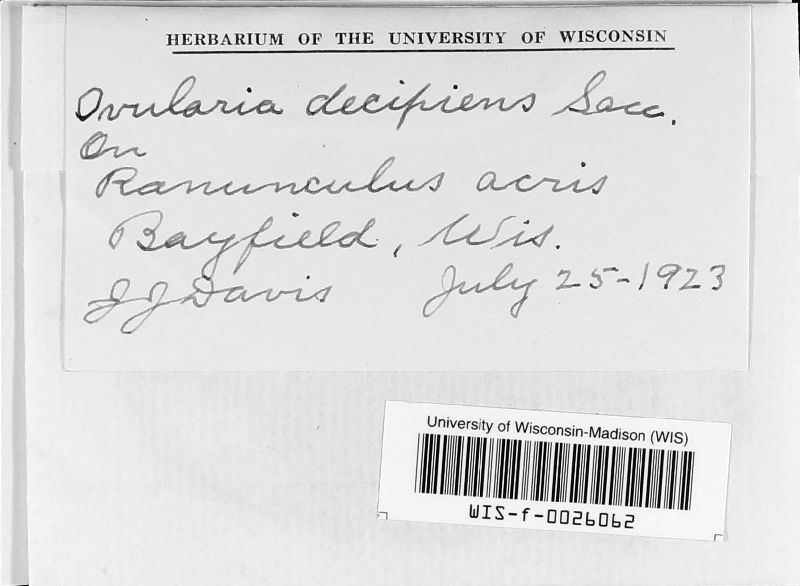 HERBARIUM OF THE UNIVERSITY OF WISCONSIN
Ovularia decipiens Sacc.
On
Ranunculus acris
Bayfield, Wis.
J J Davis July 25-1923
University of Wisconsin-Madison (WIS)
WIS-f-0026062